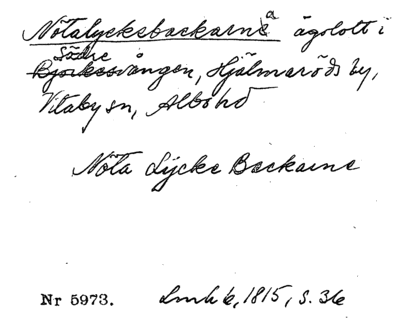 Nötalycksbackarna ägolott i
Södre
Björkesvången, Hjälmaröds by,
Vitaby sn, Albo hd
Nöta Lÿcke Backarne
Nr 5973.
Lmh 6, 1815, s. 36